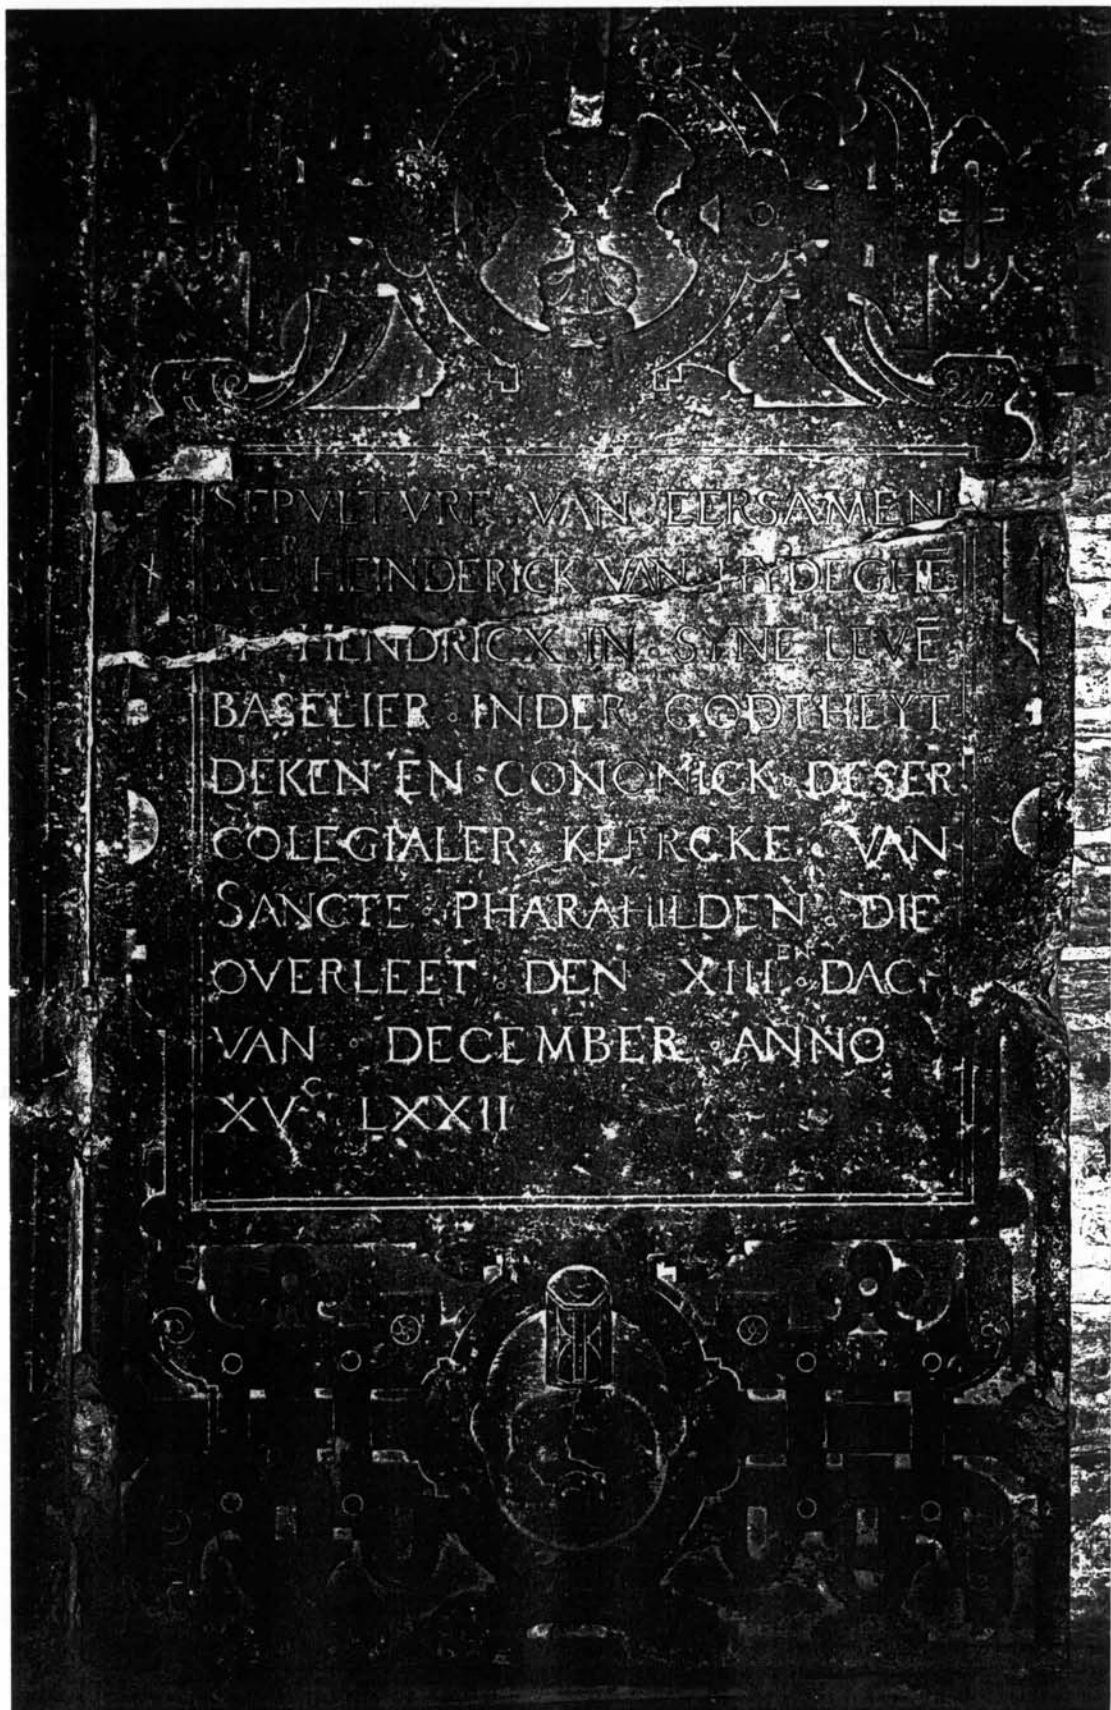 SEPVLTVRE VAN EERSAMEN
HEINDERICK VAN HYDEGHĒ
HENDRICX IN SYNE LEVĒ
BASELIER INDER GODTHEYT
DEKEN EN̄ CONONICK DESER
COLEGIALER KEERCKE VAN
SANCTE PHARAHILDEN DIE
OVERLEET DEN XIII^EN DACH
VAN DECEMBER ANNO
XV^C LXXII